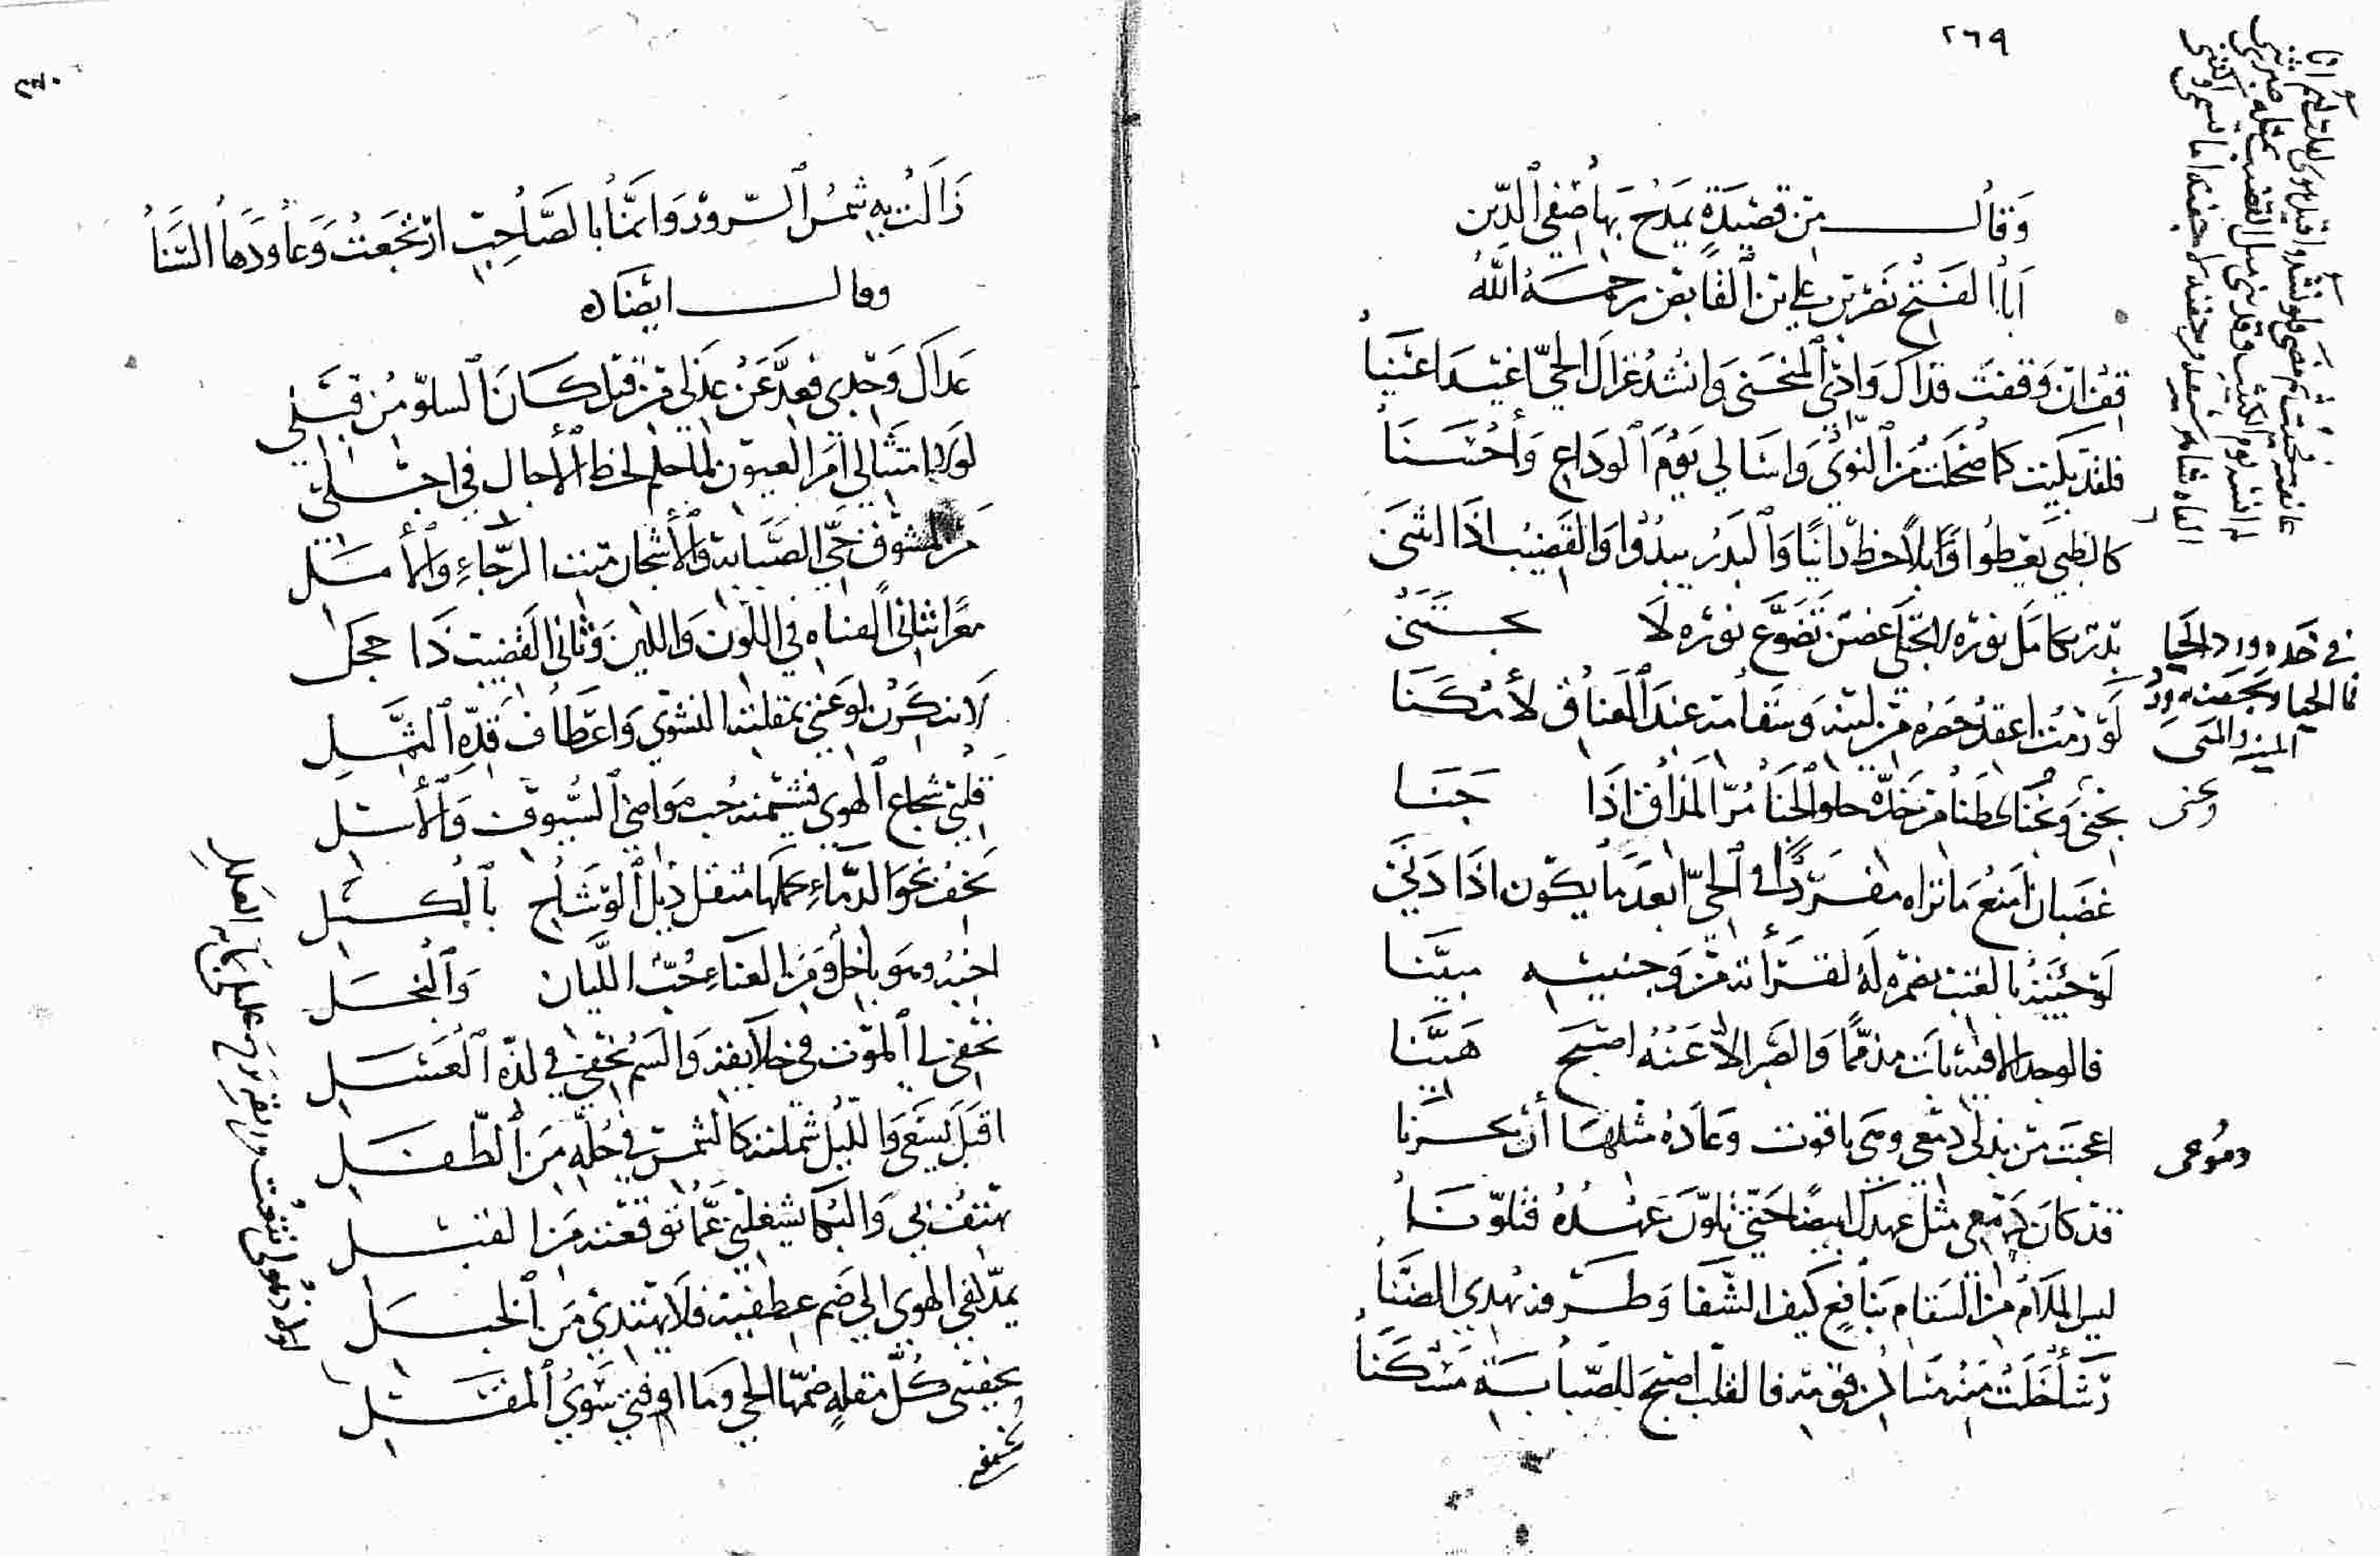 ٢٦٩
وَقال من قصيدةٍ يمدح بها صفي الدين
أبا الفتح نصر بن علي بن القابض رحمه الله
قف إن وقفت فذاك وادي المنحنى وانشد غزال الحي أغيد أعينا
فلقد بكيت كما ضحكت من النوى وأسا لي يوم الوداع وأحسنا
كالظبي يعطوا أو يلاحظ رانيًا والبدر يبدوا والقضيب اذا انثنى
بدر تكامل نوره لا يجتلى غصن تضوع نوره لا يجتنى
لو رمت أعقد خصره من لينه وسقامه عند العناق لأمكنا
يجني ونجنا لحظنا من خده حلو الجنا مر المذاق اذا جنا
غضبان امنع ما تراه مفردًا في الحي أبعد ما يكون اذا دنى
لو جئته بالغيب يضمره له لقرأته من وجنتيه مبينا
فالوجد الا فيه بات مذممًا والصبر الا عنه اصبح هينا
اعجبت من بذلي دمعي وهي ياقوت وعاده مثلها أن يحزنا
قد كان دمعي مثل عهدك ابيضًا حتى تلون عهده فتلونا
ليس الملام من السقام بنافع كيف الشفا وطرفه يهدي الضنا
رشأ خلت منه منازل قومه فالقلب اصبح للصبابة مسكنا
في خده ورد الحيا
المنية والمنى
ونحن
دموعي
٢٧٠
زالت به شمس السرور وانما بالصاحب ارتجعت وعاودها السنا
وقال ايضا
عداك وجدي فعد عن عذلي من قبل كان السلو من قبلي
لولا امتثالي امر العيون لما حكم لحظ الآجال في اجلي
من لمشوق حي الصبابة والأشجان ميت الرجاء والأمل
مغرا بثاني القناه في اللون واللين وثاني القضيب ذا خجل
لا تنكرن لوعتي بمقلته النشوى واعطاف قده الثمل
قلبي شجاع الهوى فشيمته حب مواضي السيوف والأسل
يخف نحو الدماء يحملها مثقل ذيل الوشاح بالكسل
احبه وهو باخل ومن العناء حب الليان والبخل
تخفى لي الموت في خلايقه والسم يخفى في لذة العسل
اقبل يسعى والليل شملته كالشمس في حلة من الطفل
يهتف بي والبكا يشغلني عما توقعته من القبل
يمد كفي الهوى الى ضم عطفيه فلا تهتدي من الخبل
يخيفني كل مقلة ضمها الحي وما اوقني سوى المقل
يخيفني